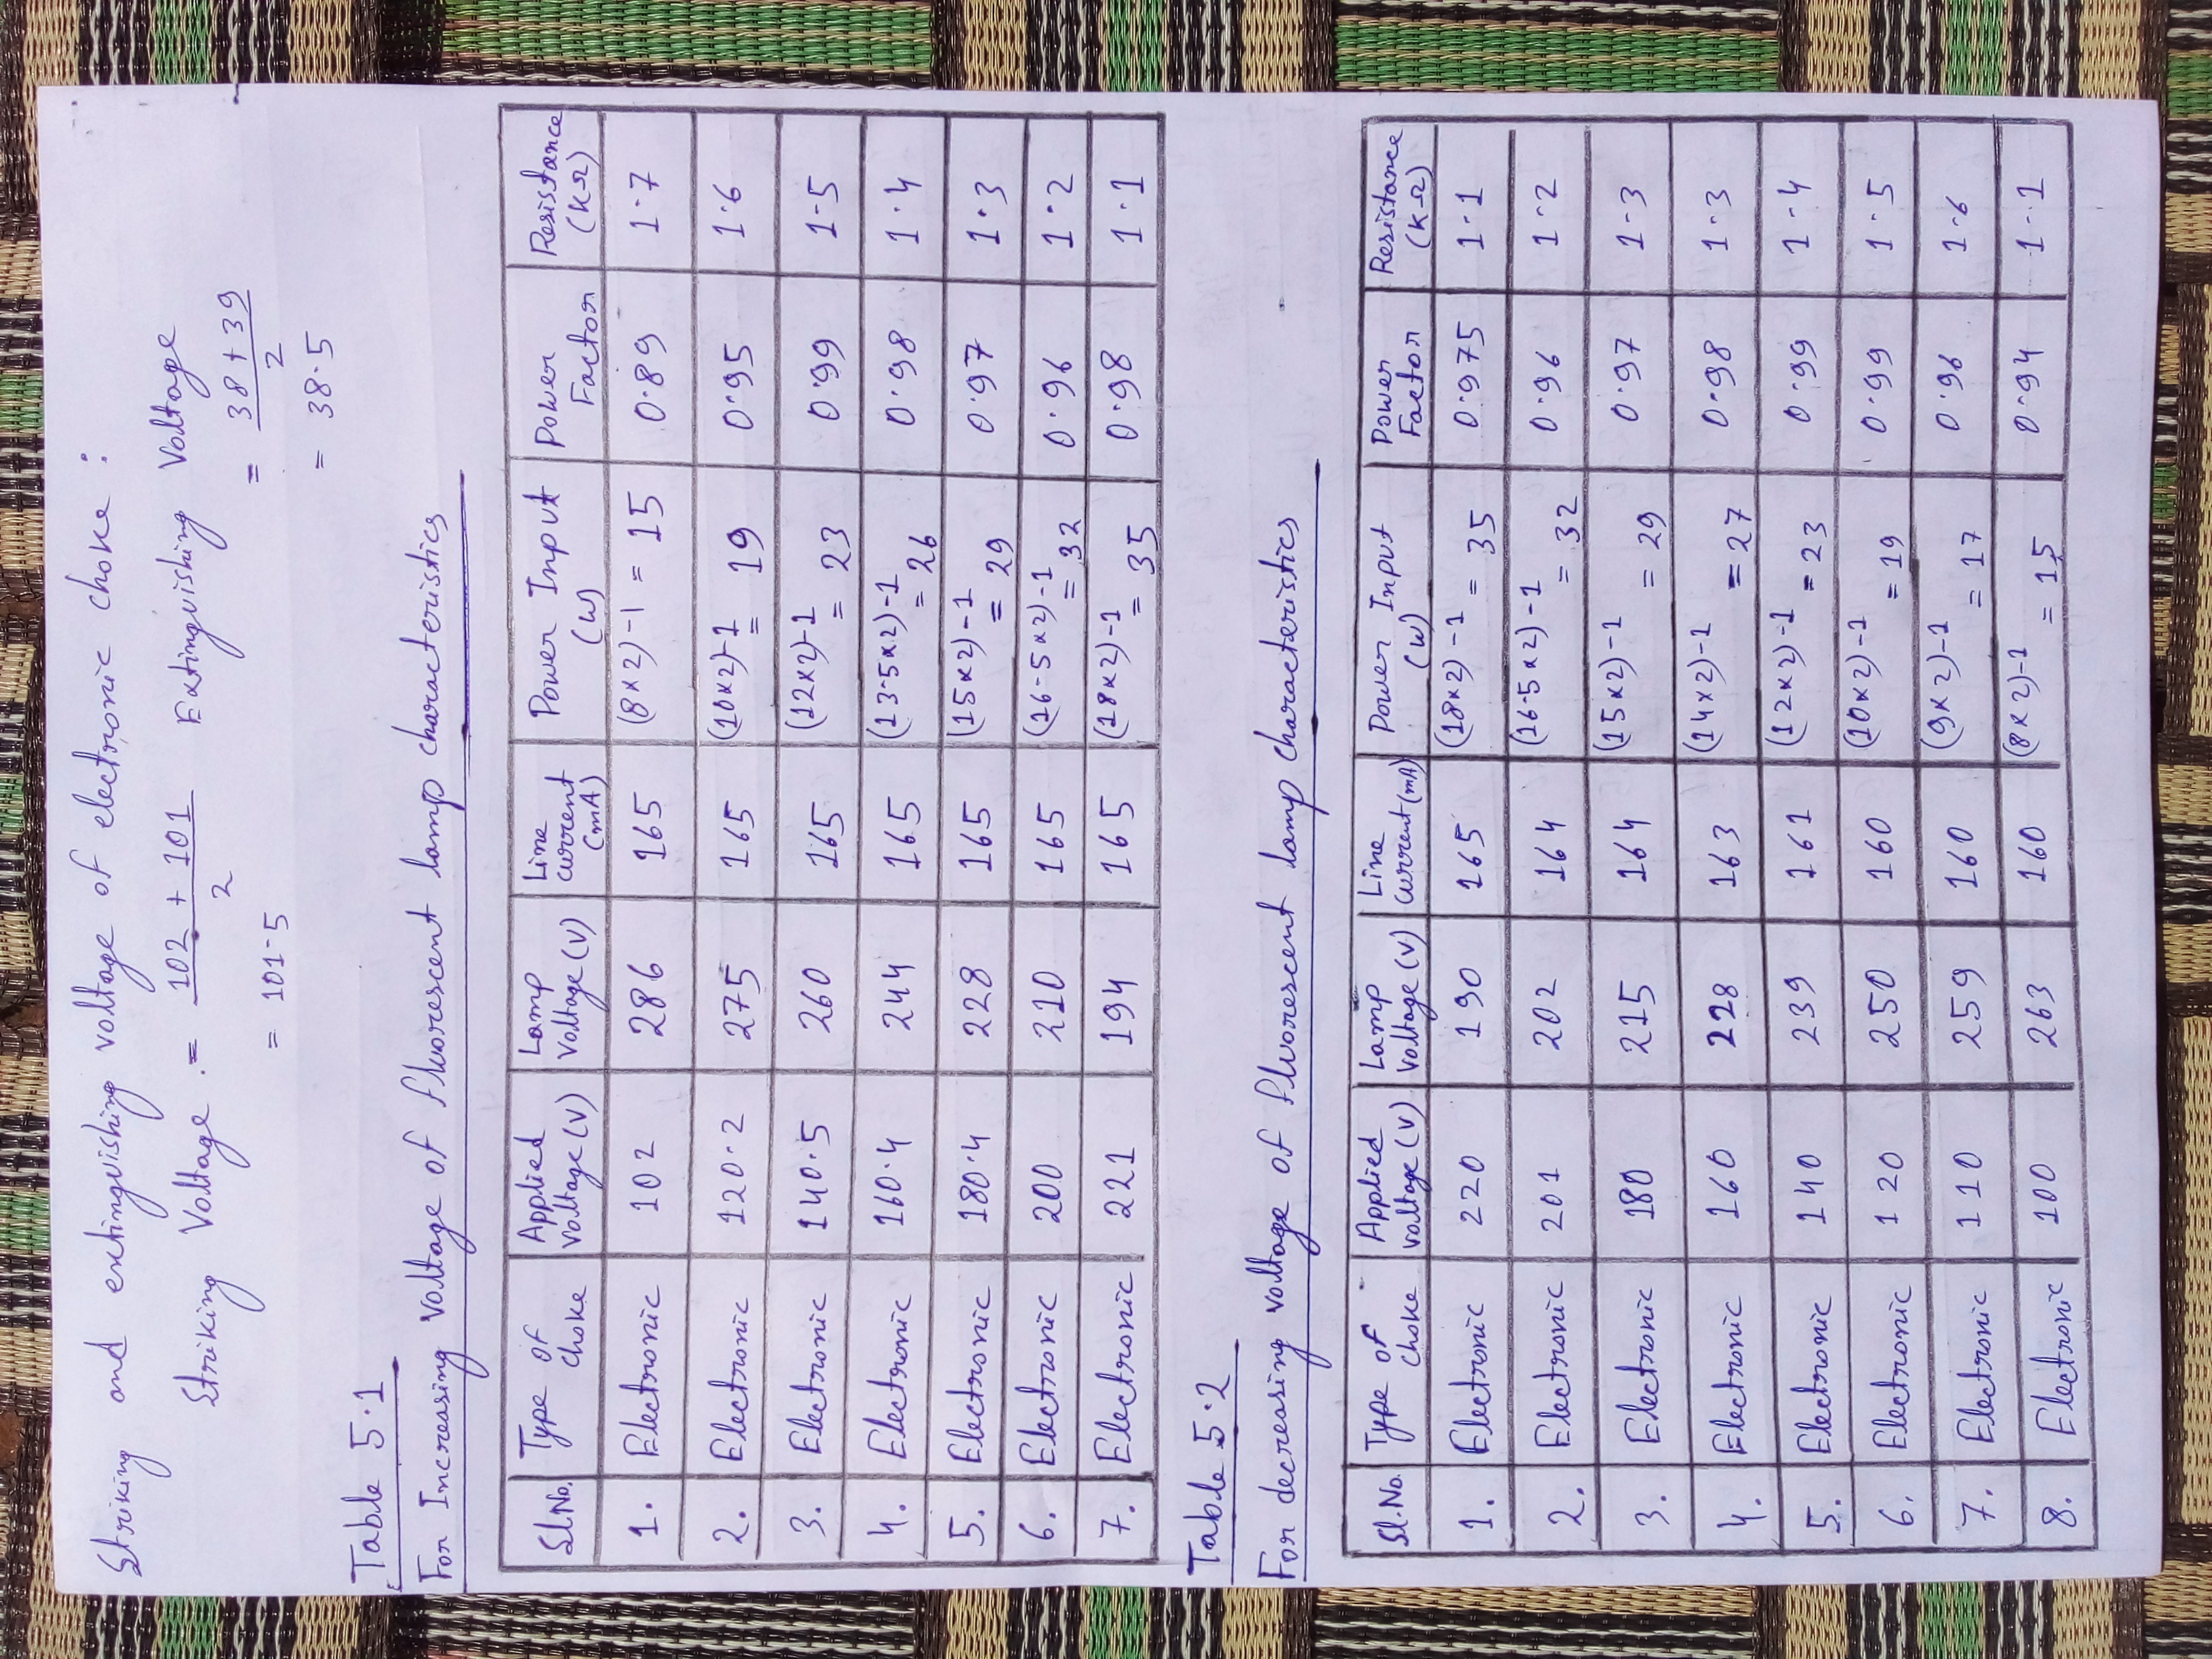 Striking and extinguishing voltage of electronic choke :
Striking Voltage = (102 + 101)/2 Extinguishing Voltage
= 101.5 = (38 + 39)/2
= 38.5
Table 5.1
For Increasing voltage of fluorescent lamp characteristics
Sl.No. Type of choke Applied voltage (V) Lamp voltage (V) Line current (mA) Power Input (W) Power Factor Resistance (KΩ)
1. Electronic 102 286 165 (8×2)-1 = 15 0.89 1.7
2. Electronic 120.2 275 165 (10×2)-1 = 19 0.95 1.6
3. Electronic 140.5 260 165 (12×2)-1 = 23 0.99 1.5
4. Electronic 160.4 244 165 (13.5×2)-1 = 26 0.98 1.4
5. Electronic 180.4 228 165 (15×2)-1 = 29 0.97 1.3
6. Electronic 200 210 165 (16.5×2)-1 = 32 0.96 1.2
7. Electronic 221 194 165 (18×2)-1 = 35 0.98 1.1
Table 5.2
For decreasing voltage of fluorescent lamp characteristics
Sl.No. Type of choke Applied voltage (V) Lamp voltage (V) Line current (mA) Power Input (W) Power Factor Resistance (KΩ)
1. Electronic 220 190 165 (18×2)-1 = 35 0.975 1.1
2. Electronic 201 202 164 (16.5×2)-1 = 32 0.96 1.2
3. Electronic 180 215 164 (15×2)-1 = 29 0.97 1.3
4. Electronic 160 228 163 (14×2)-1 = 27 0.98 1.3
5. Electronic 140 239 161 (12×2)-1 = 23 0.99 1.4
6. Electronic 120 250 160 (10×2)-1 = 19 0.99 1.5
7. Electronic 110 259 160 (9×2)-1 = 17 0.96 1.6
8. Electronic 100 263 160 (8×2)-1 = 15 0.94 1.1